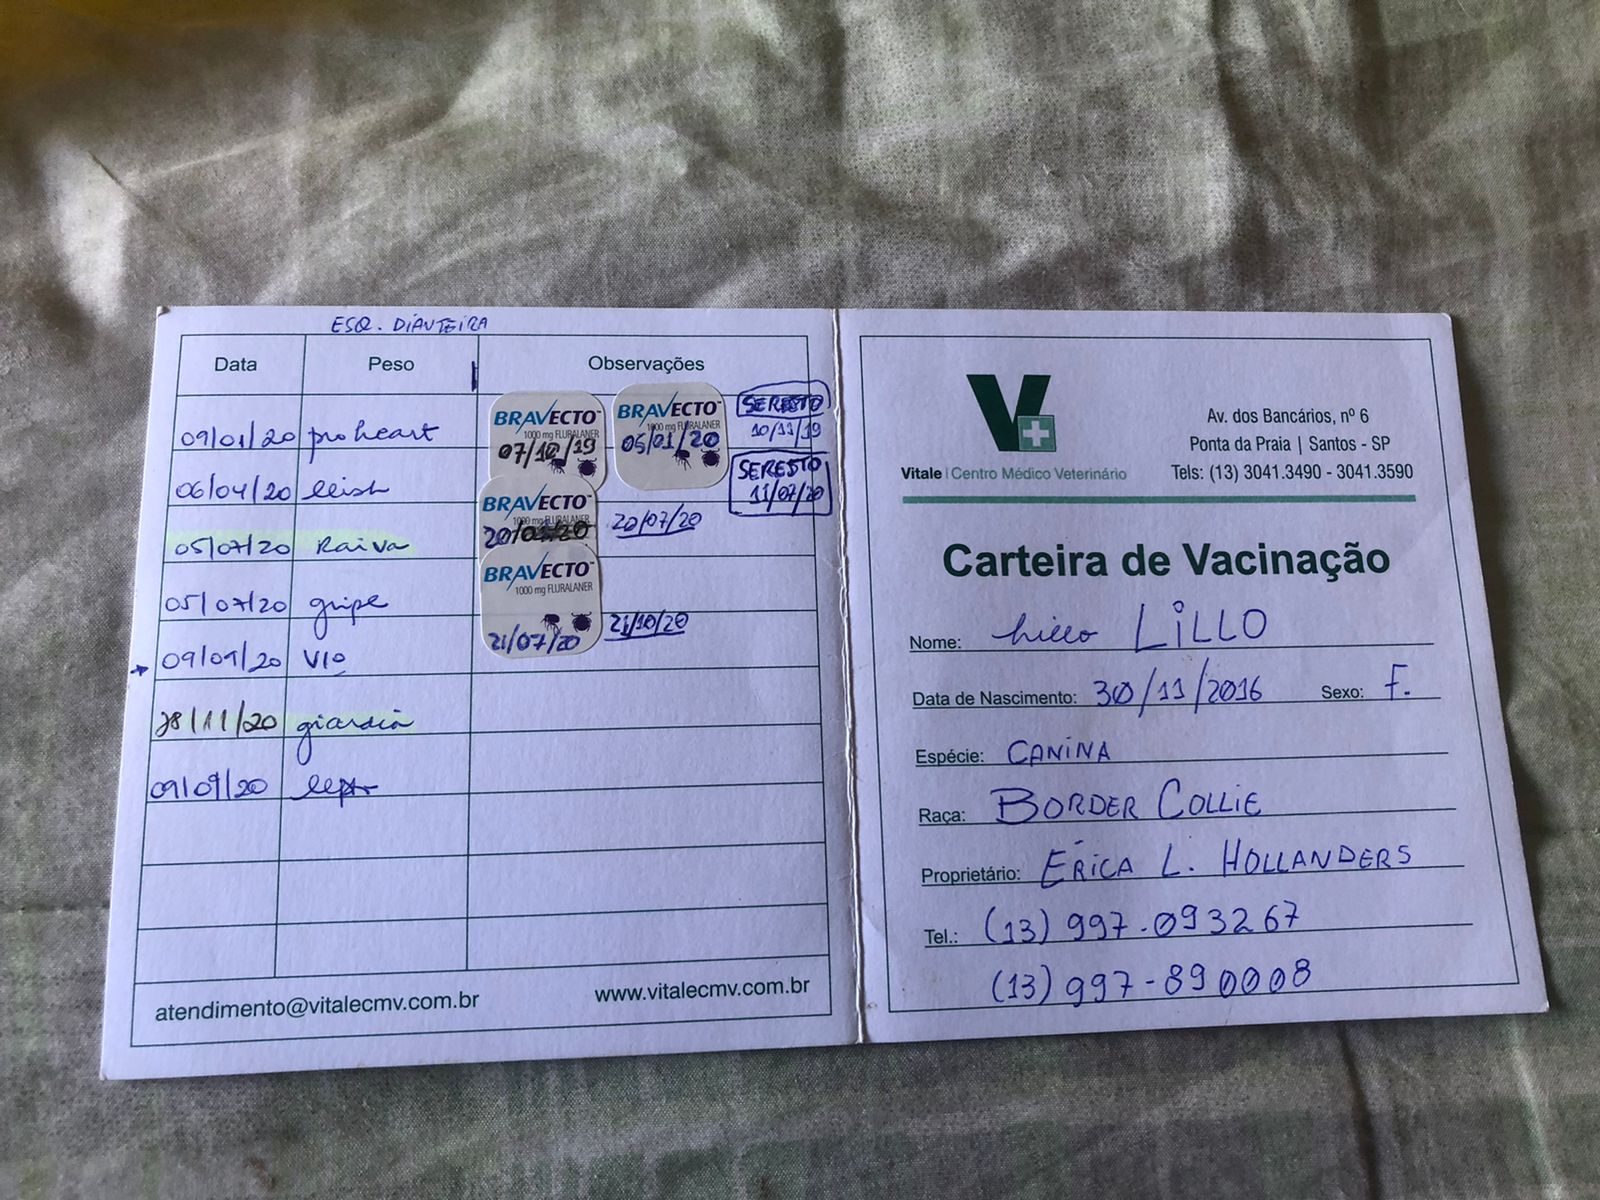 ESQ. DIANTEIRA
Data Peso Observações
09/01/20 proheart
06/04/20 leish
05/07/20 Raiva
05/07/20 gripe
09/09/20 V10
28/11/20 giardia
09/09/20
BRAVECTO
1000 mg FLURALANER
07/10/19
BRAVECTO
1000 mg FLURALANER
05/01/20
SERESTO
10/11/19
SERESTO
11/07/20
BRAVECTO
1000 mg FLURALANER
20/07/20
BRAVECTO
1000 mg FLURALANER
21/07/20
21/10/20
atendimento@vitalecmv.com.br www.vitalecmv.com.br
V
Vitale | Centro Médico Veterinário
Av. dos Bancários, nº 6
Ponta da Praia | Santos - SP
Tels: (13) 3041.3490 - 3041.3590
Carteira de Vacinação
Nome: LiLLO
Data de Nascimento: 30/11/2016 Sexo: F.
Espécie: CANINA
Raça: BORDER COLLIE
Proprietário: ÉRICA L. HOLLANDERS
Tel.: (13) 997.093267
(13) 997-890008